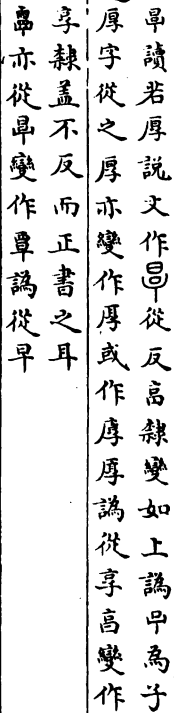 㫗讀若厚説文作從反亯隸變如上譌為子
厚字從之厚亦變作厚或作譌從享亯變作
享隸盖不反而正書之耳
亦從㫗變作覃譌從早